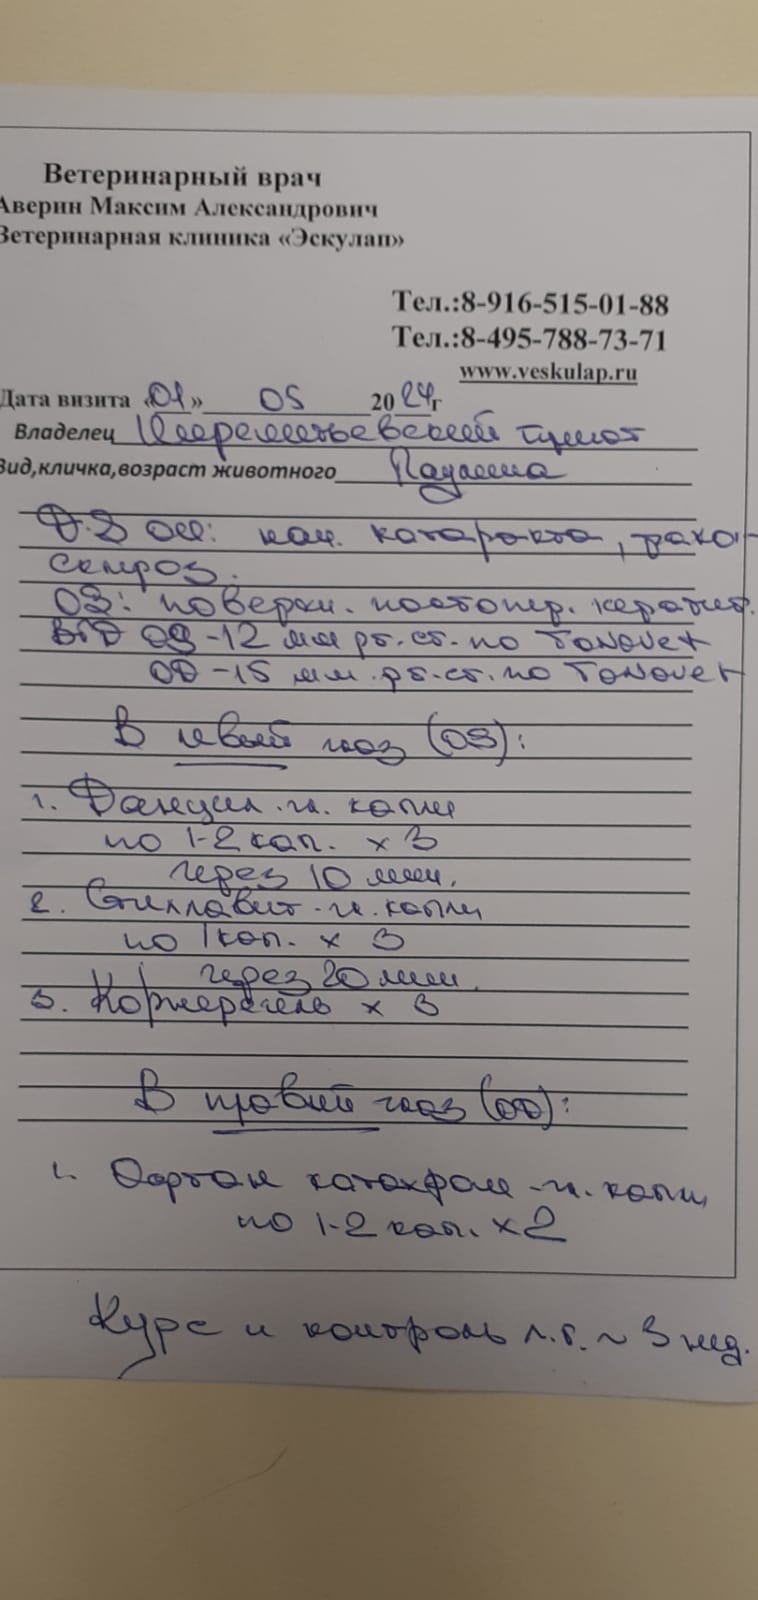 Ветеринарный врач
Аверин Максим Александрович
Ветеринарная клиника «Эскулап»
Тел.:8-916-515-01-88
Тел.:8-495-788-73-71
www.veskulap.ru
Дата визита «01» 05 2024г
Владелец Шереметьевский приют
Вид,кличка,возраст животного
D.S OU: нач. катаракта, фако-
склероз.
OS: поверхн. кератит.
ВГД OS -12 мм рт.ст. по Tonovet
OD -15 мм.рт.ст. по Tonovet
В левый глаз (OS):
1. гл. капли
по 1-2 кап. x 3
через 10 мин.
2. Стиллавит - гл. капли
по 1 кап. x 3
через 20 мин.
3. Корнерегель x 3
В правый глаз (OD):
1. Офтан катахром - гл. капли
по 1-2 кап. x 2
Курс и контроль ~ 3 нед.